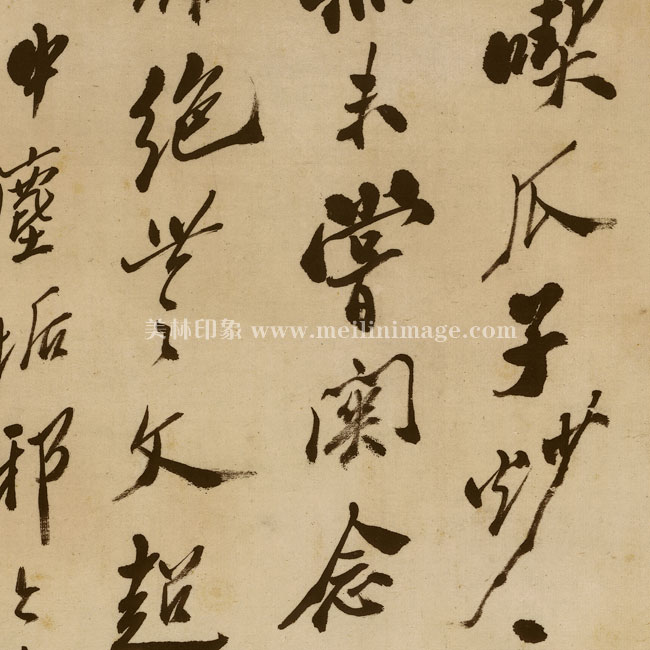 喫瓜子炒
未嘗関念
絕世之文超
中塵垢邪
美林印象 www.meilinimage.com